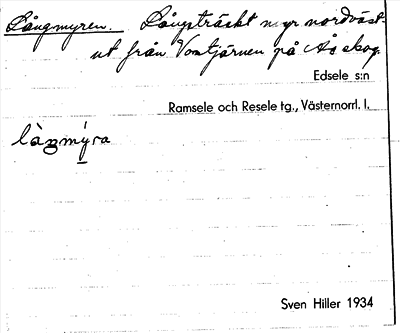 Långmyren. Långsträckt myr nordväst-
ut från Vomtjärnen på Ås skog.
Edsele s:n
Ramsele och Resele tg., Västernorrl. l.
làŋmýra
Sven Hiller 1934